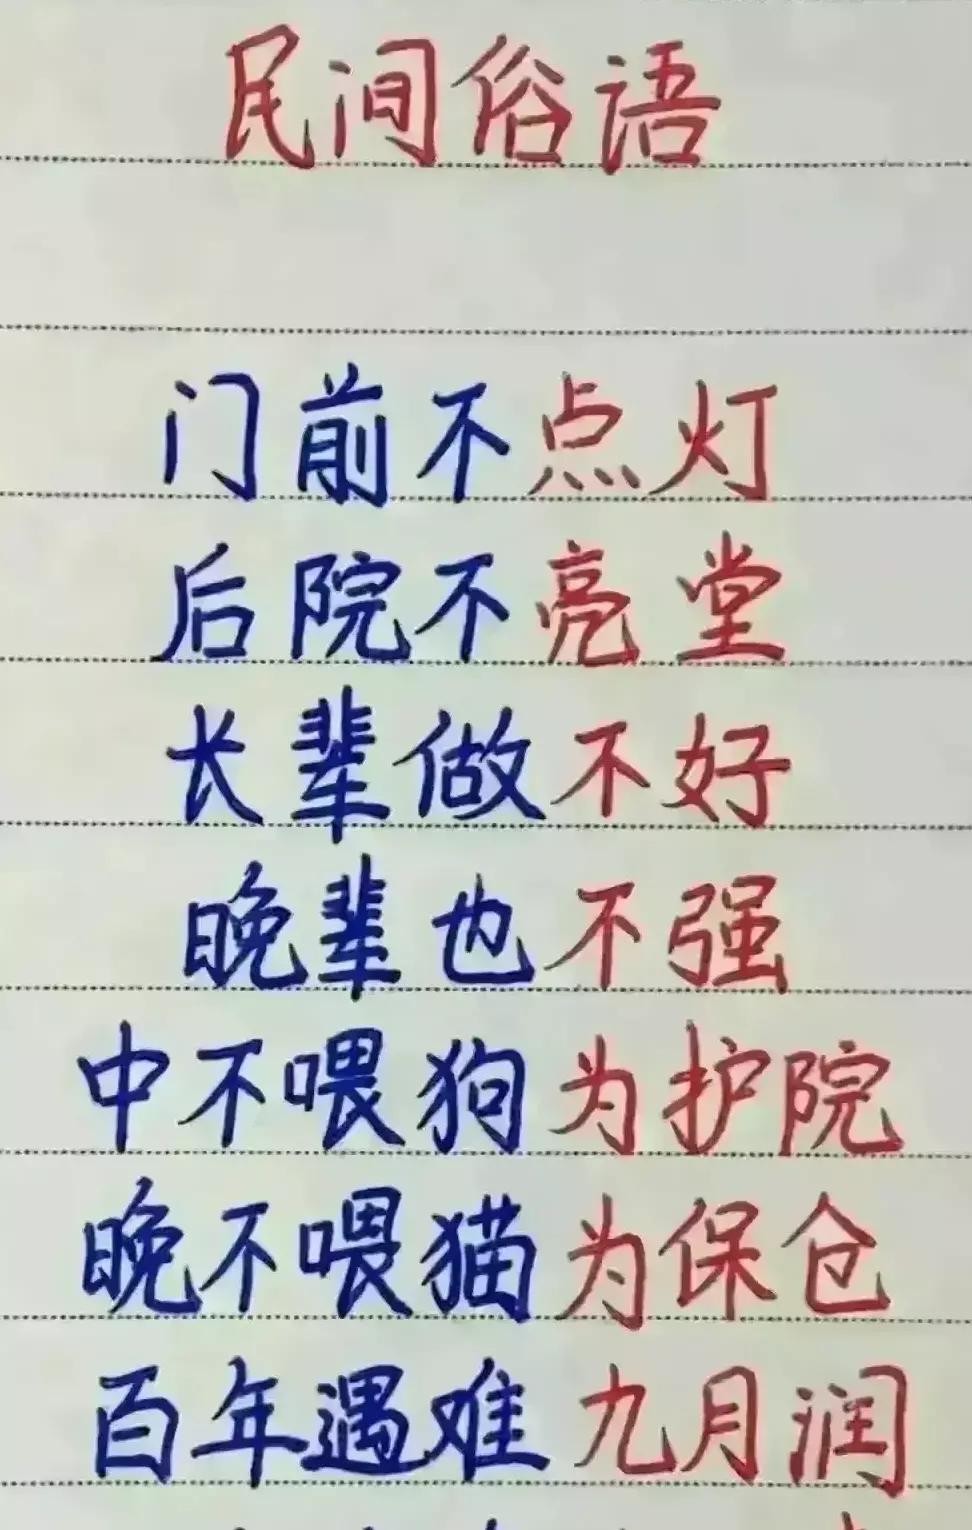 民间俗语
门前不点灯
后院不亮堂
长辈做不好
晚辈也不强
中不喂狗为护院
晚不喂猫为保仓
百年遇难九月润